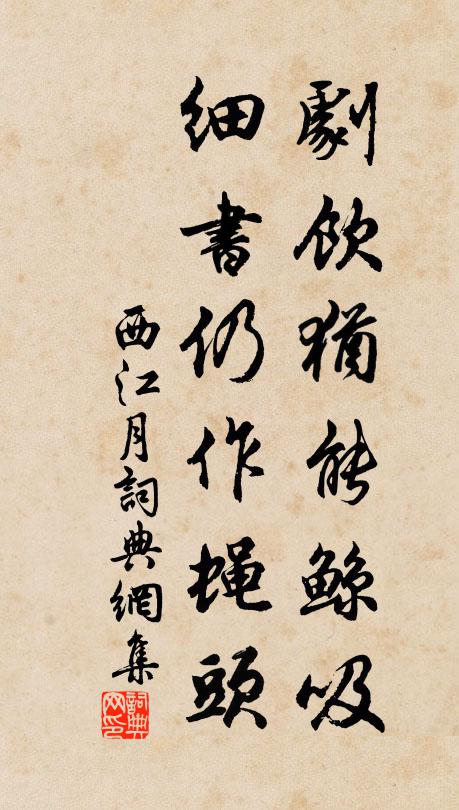 劇飲猶能鯨吸
細書仍作蝇頭
西江月詞典網集
詞典网印